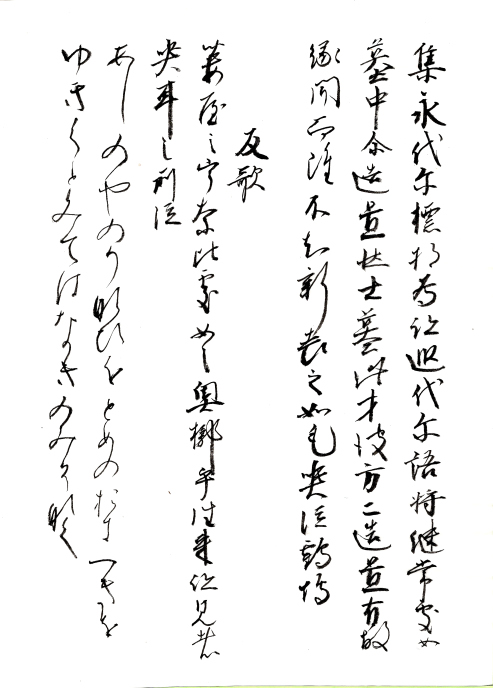 集永代尓標将為跡遐代尓語将継常處女
墓中尓造置壮士墓此方彼方二造置有故
縁聞而雖不知新喪之如毛哭泣鶴鴨
反歌
葦屋之宇奈比處女之奥槨乎徃来跡見者
哭耳之所泣
あしのやのうなひをとめのおきつきを
ゆきくとみてはなきのみしなく